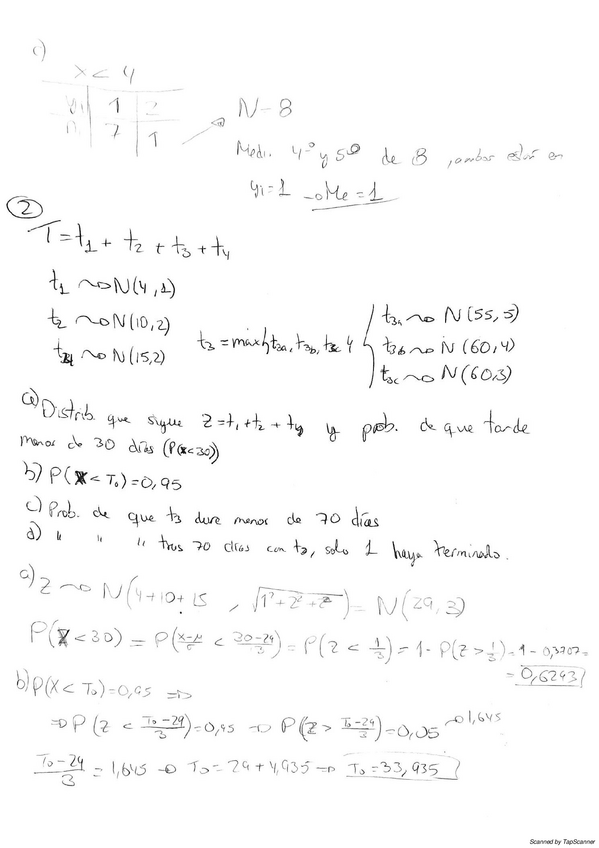 c)
x < 4
yi | 1 | 2
ni | 7 | 1
N-8
Medi. 4º y 5º de 8, ambos están en
yi=1 → Me = 1
②
T = t1 + t2 + t3 + t4
t1 ~ N(4,1)
t2 ~ N(10,2)
t4 ~ N(15,2)
t3 = máx{t3a, t3b, t3c}
t3a ~ N(55,5)
t3b ~ N(60,4)
t3c ~ N(60,3)
a) Distrib. que sigue Z = t1 + t2 + t4 y prob. de que tarde
menos de 30 días (P(X<30))
b) P(X < To) = 0,95
c) Prob. de que t3 dure menos de 70 días
d) " " " tras 70 días con t3, solo 1 haya terminado.
a) Z ~ N(4+10+15, √(1²+2²+2²)) = N(29,3)
P(X<30) = P((x-μ)/σ < (30-29)/3) = P(Z < 1/3) = 1 - P(Z > 1/3) = 1 - 0,3707 =
= 0,6293
b) P(X < To) = 0,95 ⇒
⇒ P(Z < (To-29)/3) = 0,95 → P(Z > (To-29)/3) = 0,05 → 1,645
(To-29)/3 = 1,645 → To = 29 + 4,935 ⇒ To = 33,935
Scanned by TapScanner